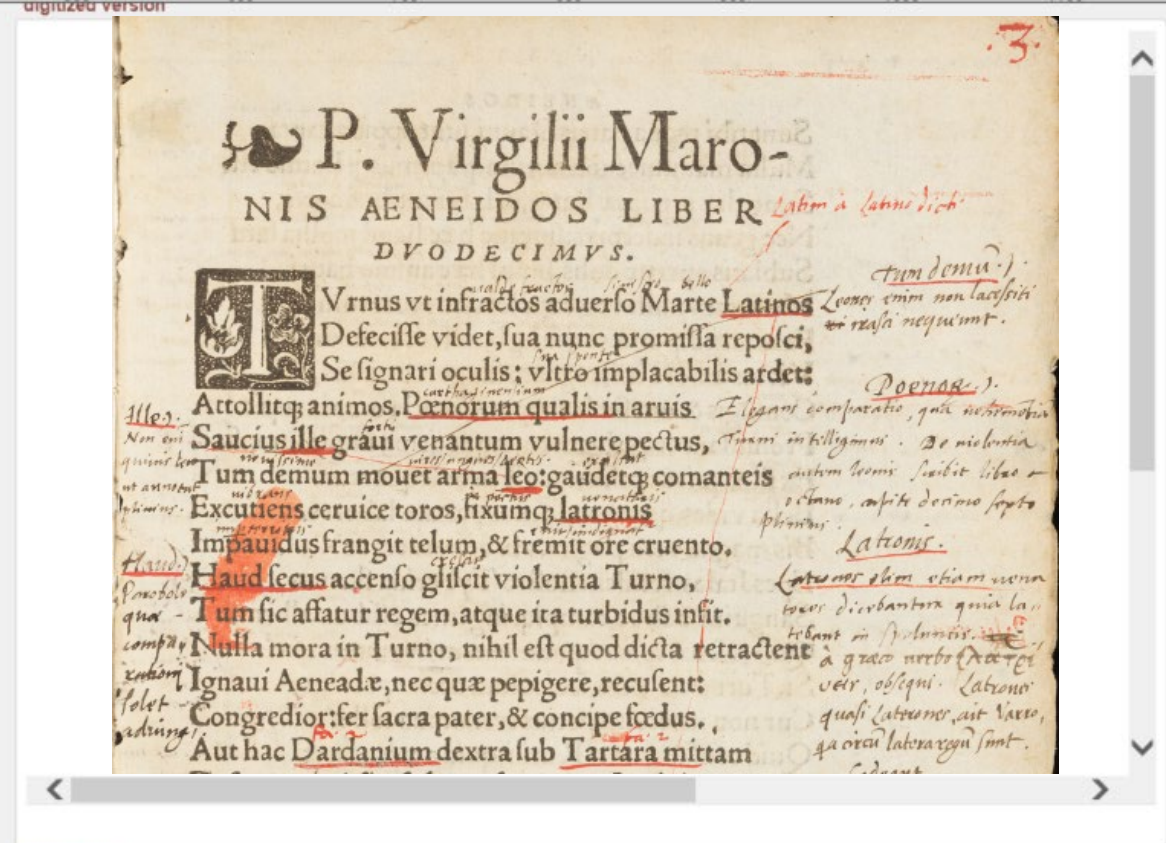 digitized version
3.
P. Virgilii Maro-
NIS AENEIDOS LIBER
Latini à Latino dicti
DVODECIMVS.
TVrnus vt infractos aduerso Marte Latinos
Defecisse videt, sua nunc promissa reposci,
Se signari oculis: vltro implacabilis ardet:
Attollitq; animos. Pœnorum qualis in aruis
Saucius ille graui venantum vulnere pectus,
Tum demum mouet arma leo: gaudetq; comanteis
Excutiens ceruice toros, fixumq; latronis
Impauidus frangit telum, & fremit ore cruento.
Haud secus accenso gliscit violentia Turno,
Tum sic affatur regem, atque ita turbidus infit.
Nulla mora in Turno, nihil est quod dicta retractent
Ignaui Aeneadæ, nec quæ pepigere, recusent:
Congredior: fer sacra pater, & concipe fœdus.
Aut hac Dardanium dextra sub Tartara mittam
bello
sua sponte
carthaginensium
forti
novissime
vibrans
Tum demū
Leones enim non lacessiti
irasci nequeunt.
Poenor
Elegans comparatio, qua
Turni intelligimus. De violentia
autem leonis scribit libro
octavo, capite decimo septo
plinius.
Latronis.
Latrones olim etiam vena
tores dicebantur quia la
tebant in speluncis.
à græco verbo
obsequi. Latrones
quasi Laterones, ait Varro,
circū latera regū sunt.
Ille
Non
ut annotat
plinius.
Haud
Parabola
quæ
solet
adiungi